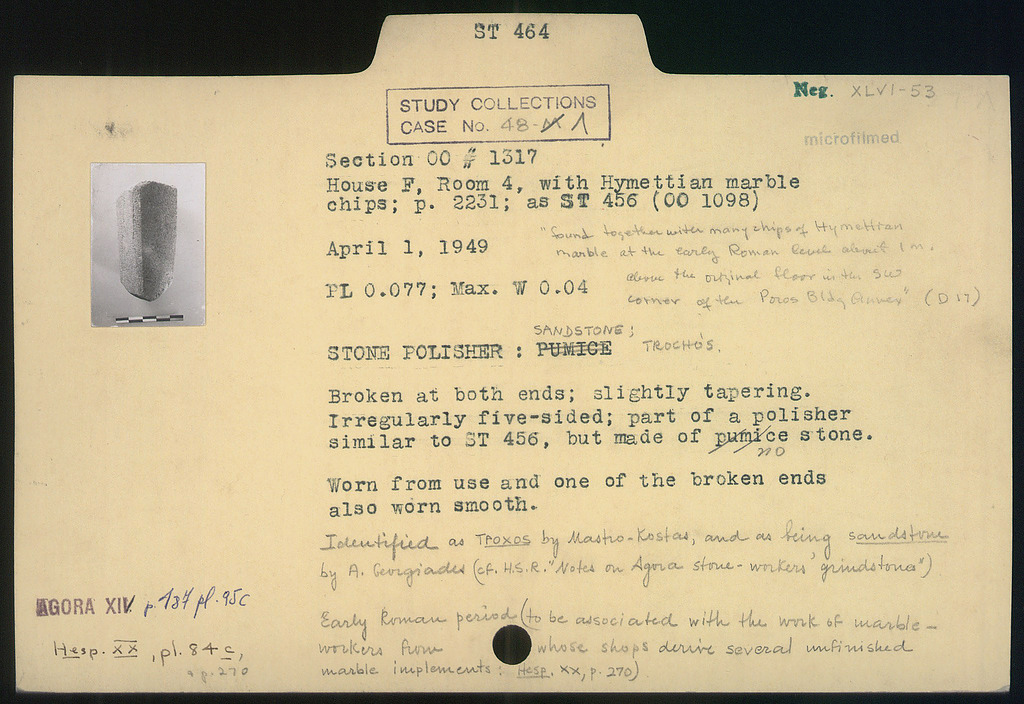 ST 464
Neg. XLVI-53
STUDY COLLECTIONS
CASE No. 48-
microfilmed
Section OO # 1317
House F, Room 4, with Hymettian marble
chips; p. 2231; as ST 456 (OO 1098)
"found together with many chips of Hymettian
marble at the early Roman level about 1 m.
above the original floor in the SW
corner of the Poros Bldg Annex" (D 17)
April 1, 1949
PL 0.077; Max. W 0.04
SANDSTONE;
STONE POLISHER : PUMICE TROCHÓS.
Broken at both ends; slightly tapering.
Irregularly five-sided; part of a polisher
similar to ST 456, but made of pumice stone.
no
Worn from use and one of the broken ends
also worn smooth.
Identified as ΤΡΟΧΟΣ by Mastro-Kostas, and as being sandstone
by A. Georgiades (cf. H.S.R. "Notes on Agora stone-workers' grindstones")
Early Roman period (to be associated with the work of marble-
workers from whose shops derive several unfinished
marble implements: Hesp. XX, p. 270)
AGORA XIV p. 187 pl. 95c
Hesp. XX, pl. 84 c,
p. 270